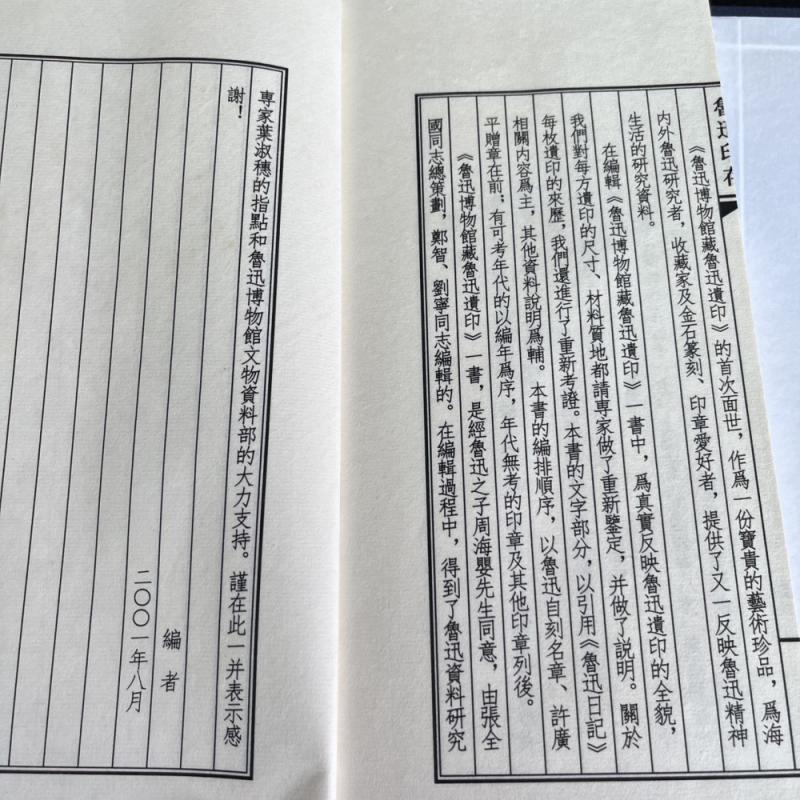 魯迅印存
《魯迅博物館藏魯迅遺印》的首次面世，作爲一份寶貴的藝術珍品，爲海
内外魯迅研究者，收藏家及金石篆刻、印章愛好者，提供了又一反映魯迅精神
生活的研究資料。
在編輯《魯迅博物館藏魯迅遺印》一書中，爲真實反映魯迅遺印的全貌，
我們對每方遺印的尺寸、材料質地都請專家做了重新鑒定，并做了説明。關於
每枚遺印的來歷，我們還進行了重新考證。本書的文字部分，以引用《魯迅日記》
相關内容爲主，其他資料説明爲輔。本書的編排順序，以魯迅自刻名章、許廣
平贈章在前；有可考年代的以編年爲序，年代無考的印章及其他印章列後。
《魯迅博物館藏魯迅遺印》一書，是經魯迅之子周海嬰先生同意，由張全
國同志總策劃，鄭智、劉寧同志編輯的。在編輯過程中，得到了魯迅資料研究
專家葉淑穗的指點和魯迅博物館文物資料部的大力支持。謹在此一并表示感
謝！
編者
二〇〇一年八月